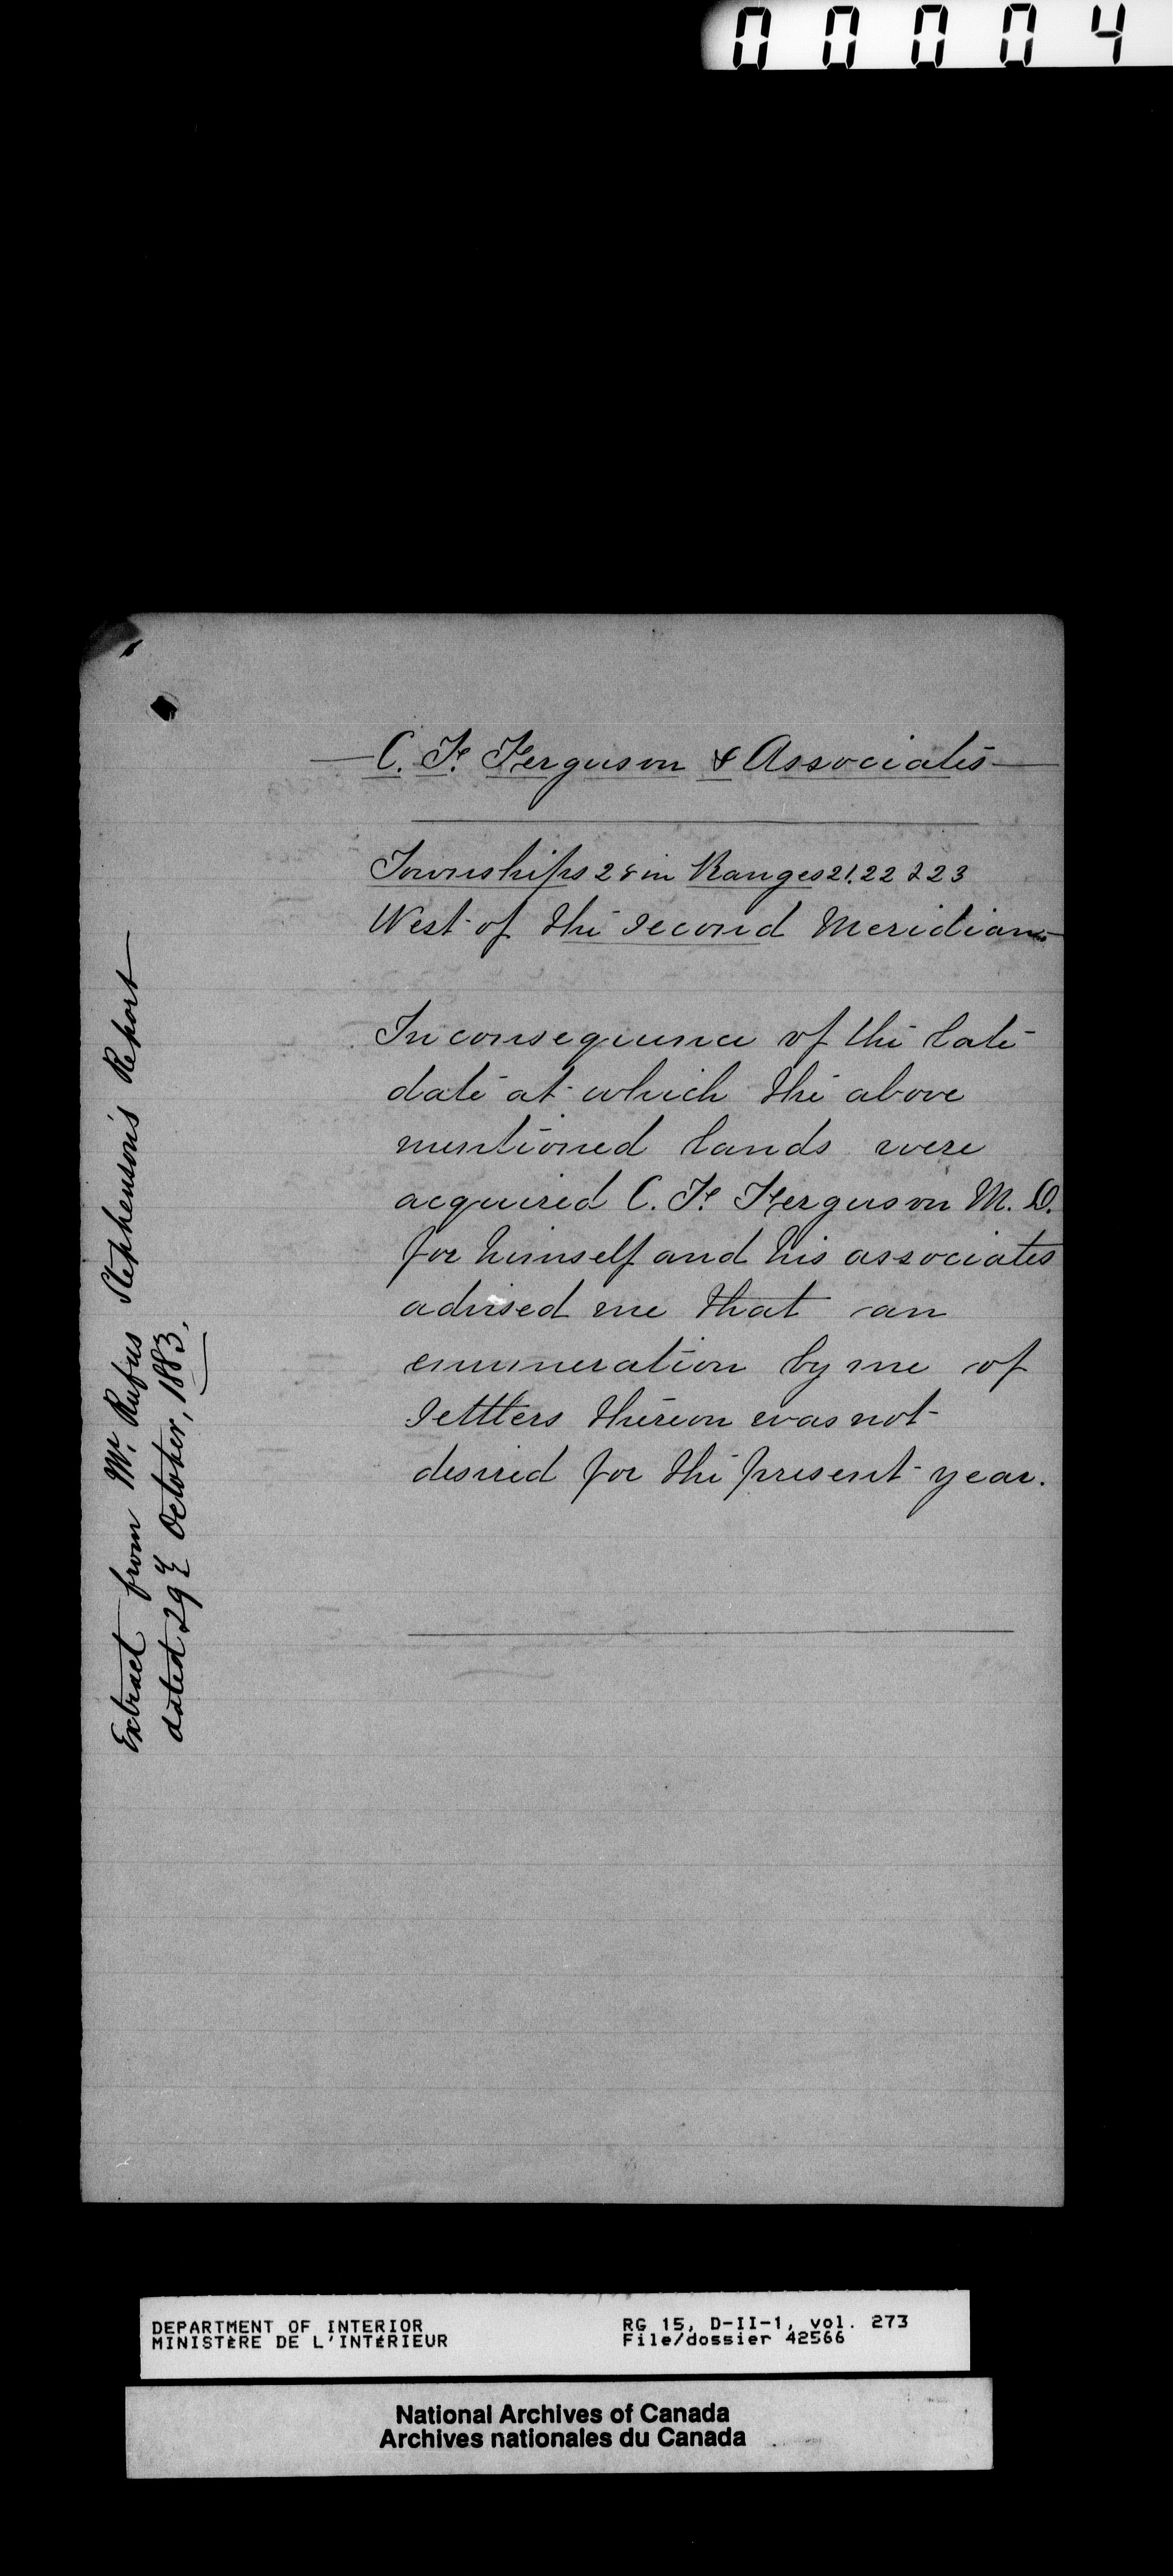 00004
C. F. Ferguson & Associates
Townships 28 in Ranges 21. 22 & 23
West of the second Meridian
In consequence of the late
date at which the above
mentioned lands were
acquired C. F. Ferguson M. D.
for himself and his associates
advised me that an
enumeration by me of
settlers thereon was not
desired for the present year.
Extract from Mr. Rufus Stephenson's Report
dated 29th October, 1883.
DEPARTMENT OF INTERIOR
MINISTÈRE DE L'INTÉRIEUR
RG 15, D-II-1, vol. 273
File/dossier 42566
National Archives of Canada
Archives nationales du Canada